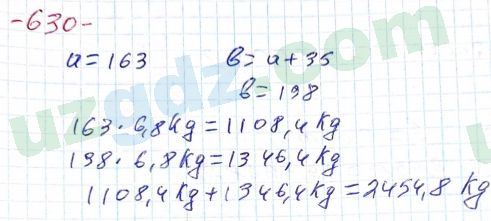 -630-
a=163 b=a+35
b=198
163·6,8kg=1108,4kg
198·6,8kg=1346,4kg
1108,4kg+1346,4kg=2454,8 kg
uzgdz.com